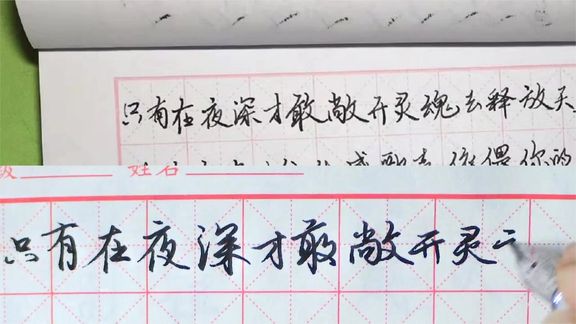 只有在夜深才敢敞开灵魂去释放天
感
依偎你的
级 姓名
只有在夜深才敢敞开灵